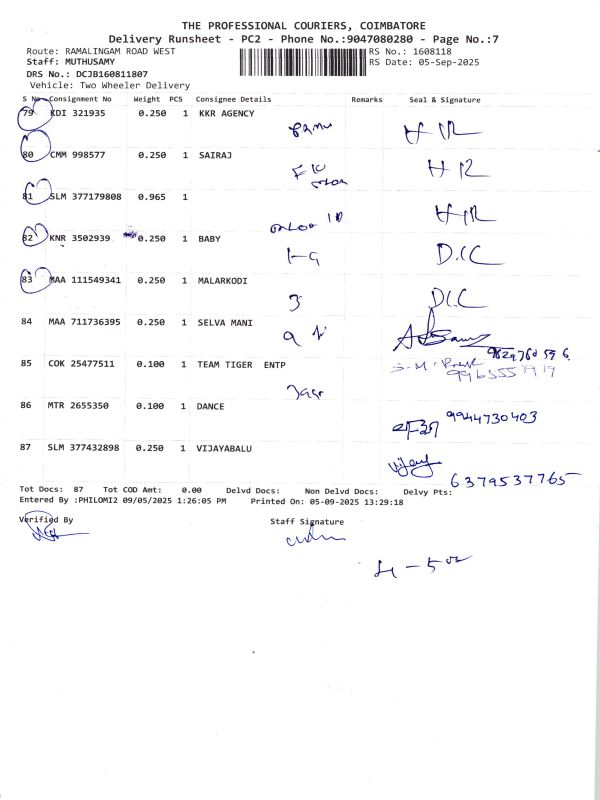 THE PROFESSIONAL COURIERS, COIMBATORE
Delivery Runsheet - PC2 - Phone No.:9047080280 - Page No.:7
Route: RAMALINGAM ROAD WEST
RS No.: 1608118
Staff: MUTHUSAMY
RS Date: 05-Sep-2025
DRS No.: DCJB160811807
Vehicle: Two Wheeler Delivery
S No Consignment No Weight PCS Consignee Details Remarks Seal & Signature
79 KDI 321935 0.250 1 KKR AGENCY
80 CMM 998577 0.250 1 SAIRAJ
81 SLM 377179808 0.965 1
82 KNR 3502939 0.250 1 BABY
D.C
83 MAA 111549341 0.250 1 MALARKODI
3
84 MAA 711736395 0.250 1 SELVA MANI
85 COK 25477511 0.100 1 TEAM TIGER ENTP
86 MTR 2655350 0.100 1 DANCE
9944730403
87 SLM 377432898 0.250 1 VIJAYABALU
Vijay
6379537765
Tot Docs: 87 Tot COD Amt: 0.00 Delvd Docs: Non Delvd Docs: Delvy Pts:
Entered By :PHILOMI2 09/05/2025 1:26:05 PM Printed On: 05-09-2025 13:29:18
Verified By Staff Signature